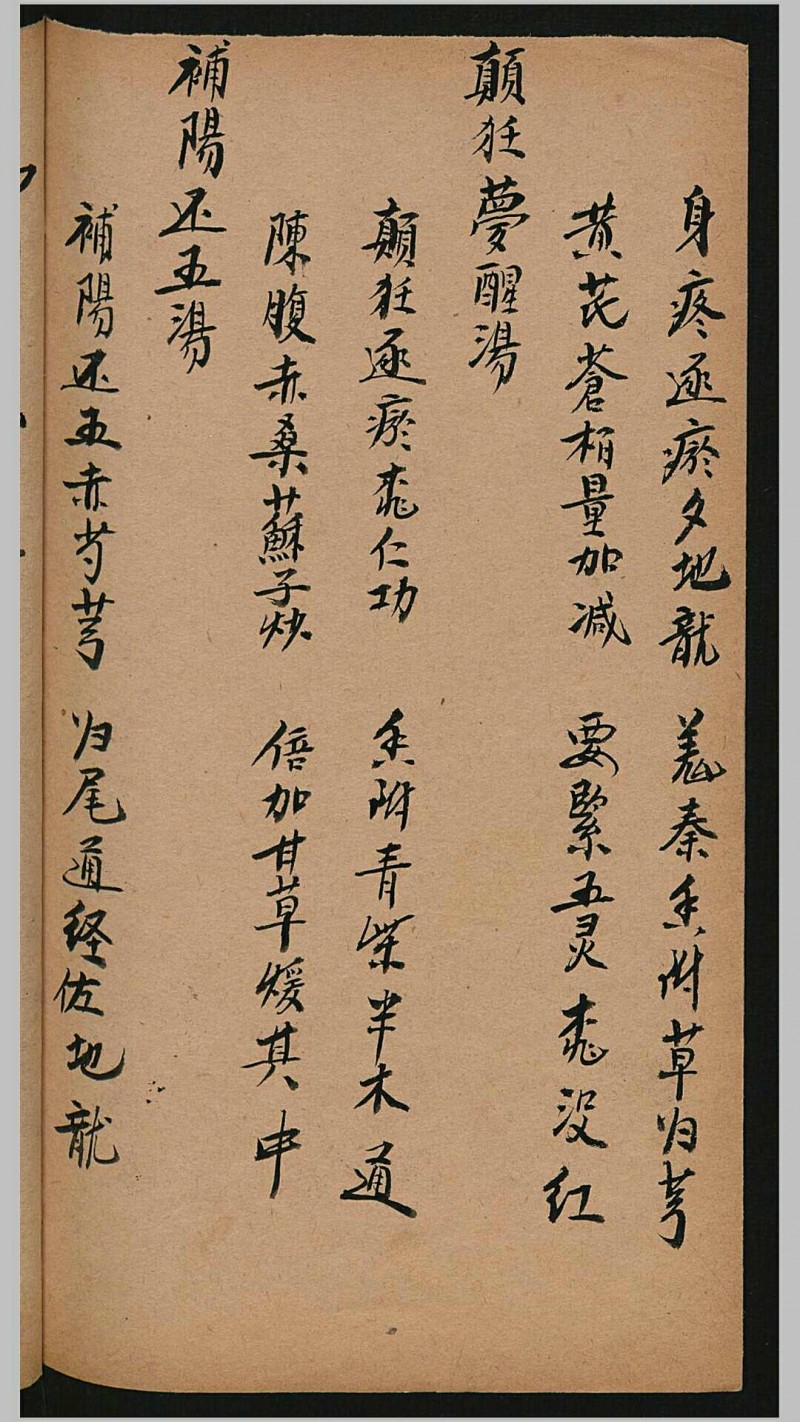 身疼逐瘀夕地龍 羗秦香附草归芎
黄芪蒼栢量加减 要緊五灵桃没红
顛狂夢醒湯
顛狂逐瘀桃仁功 香附青柴半木通
陳腹赤桑蘇子炒 倍加甘草煖其中
補陽还五湯
補陽还五赤芍芎 归尾通经佐地龍